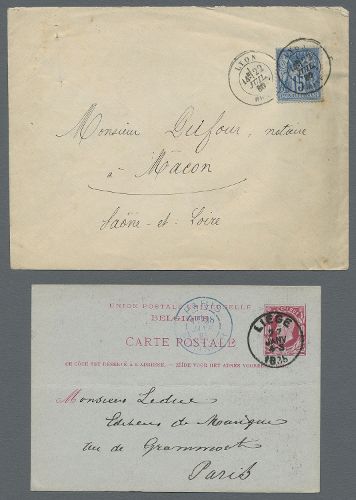 LYON
22
JUIL
15
Monsieur Dufour, notaire
à Mâcon
Saône-et-Loire
UNION POSTALE UNIVERSELLE
BELGIQUE
CARTE POSTALE
CE CÔTÉ EST RÉSERVÉ À L'ADRESSE. — ZIJDE VOOR HET ADRES VOORBEHOUDEN
LIÈGE
JANV
1885
Monsieur Leduc
Editeur de Musique
rue de Grammont
Paris